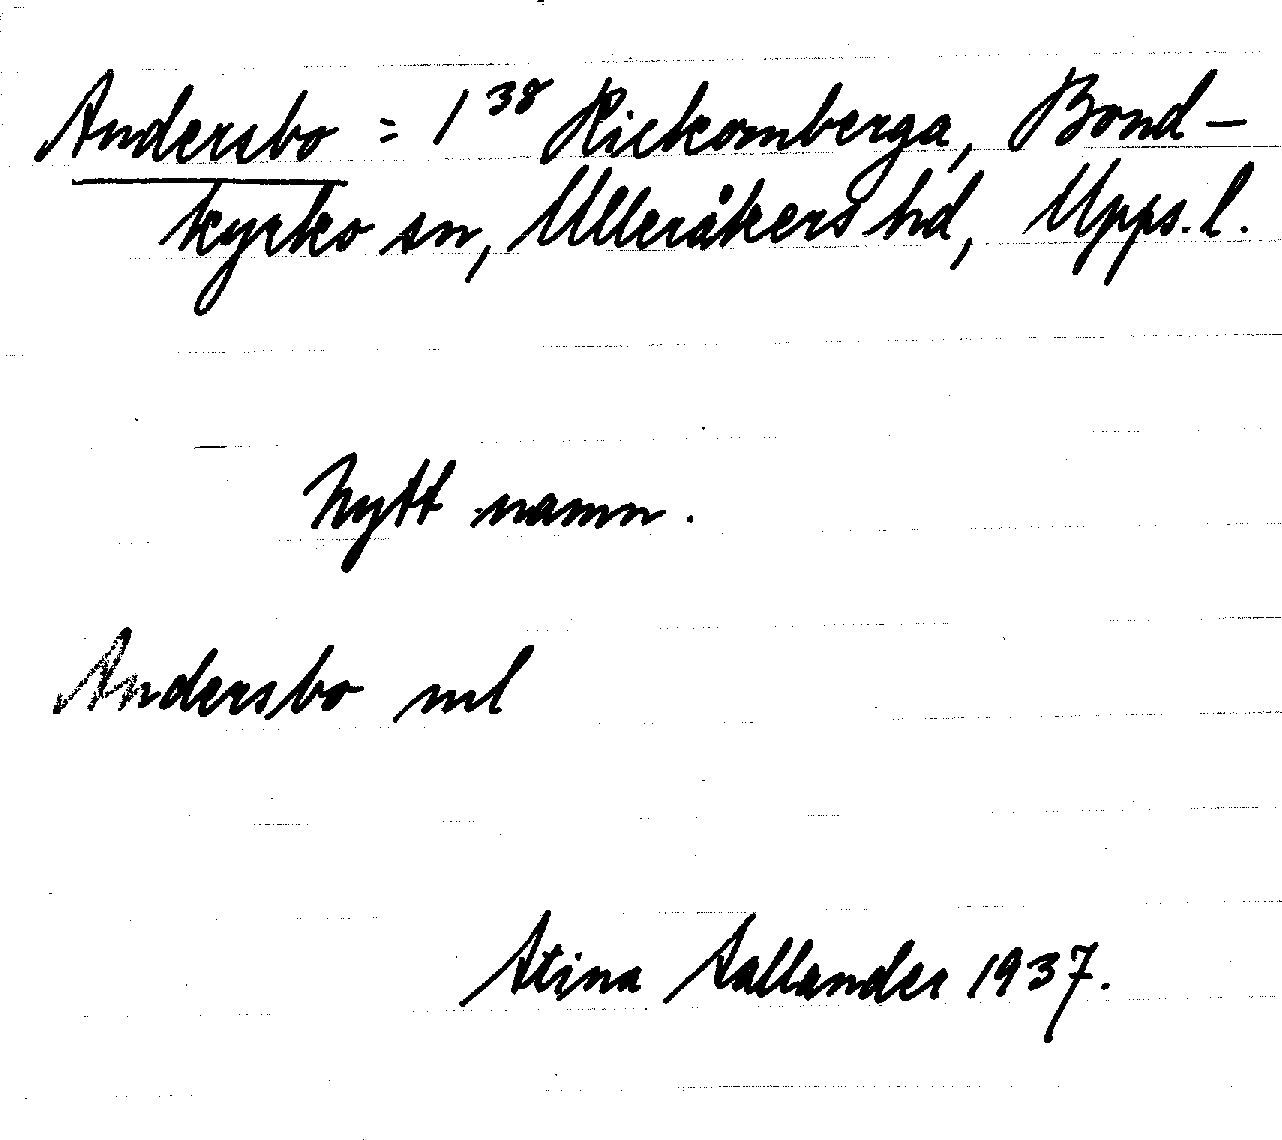 Andersbo = 1³⁸ Rickomberga, Bond-
kyrko sn, Ulleråkers hd, Upps. l.
Nytt namn.
Andersbo ml
Stina Sallander 1937.